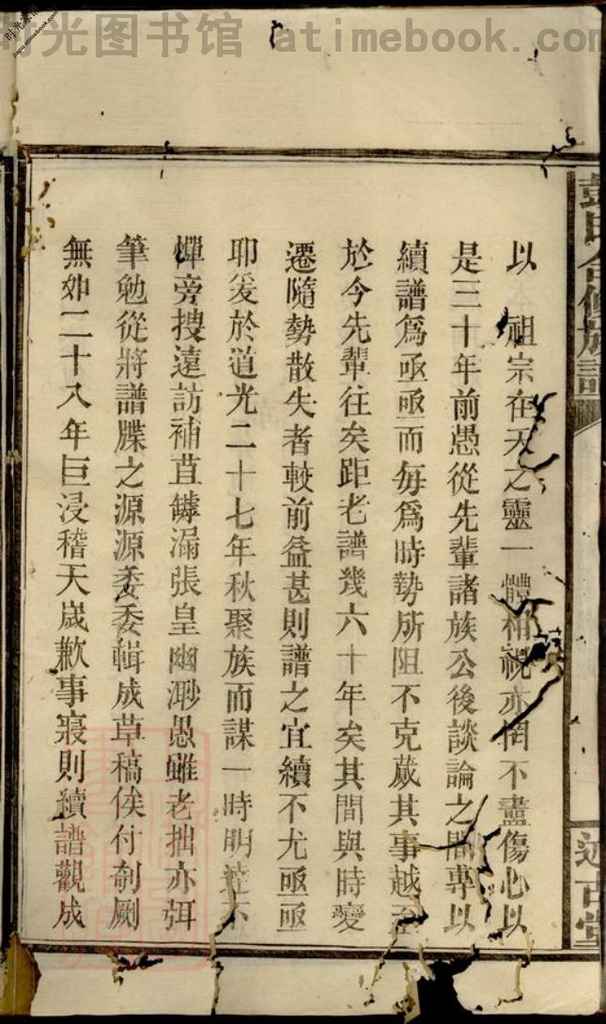 时光图书馆 atimebook.com
彭氏合修族譜
述古堂
以 祖宗在天之靈一體相視亦罔不盡傷心以
是三十年前愚從先輩諸族公後談論之間專以
續譜爲亟亟而每爲時勢所阻不克蕆其事越至
於今先輩往矣距老譜幾六十年矣其間與時變
遷隨勢散失者較前益甚則譜之宜續不尤亟亟
耶爰於道光二十七年秋聚族而謀一時明達不
憚旁搜遠訪補苴罅漏張皇幽渺愚雖老拙亦弭
筆勉從將譜牒之源源委委輯成草稿俟付剞劂
無如二十八年巨浸稽天歲歉事寢則續譜觀成